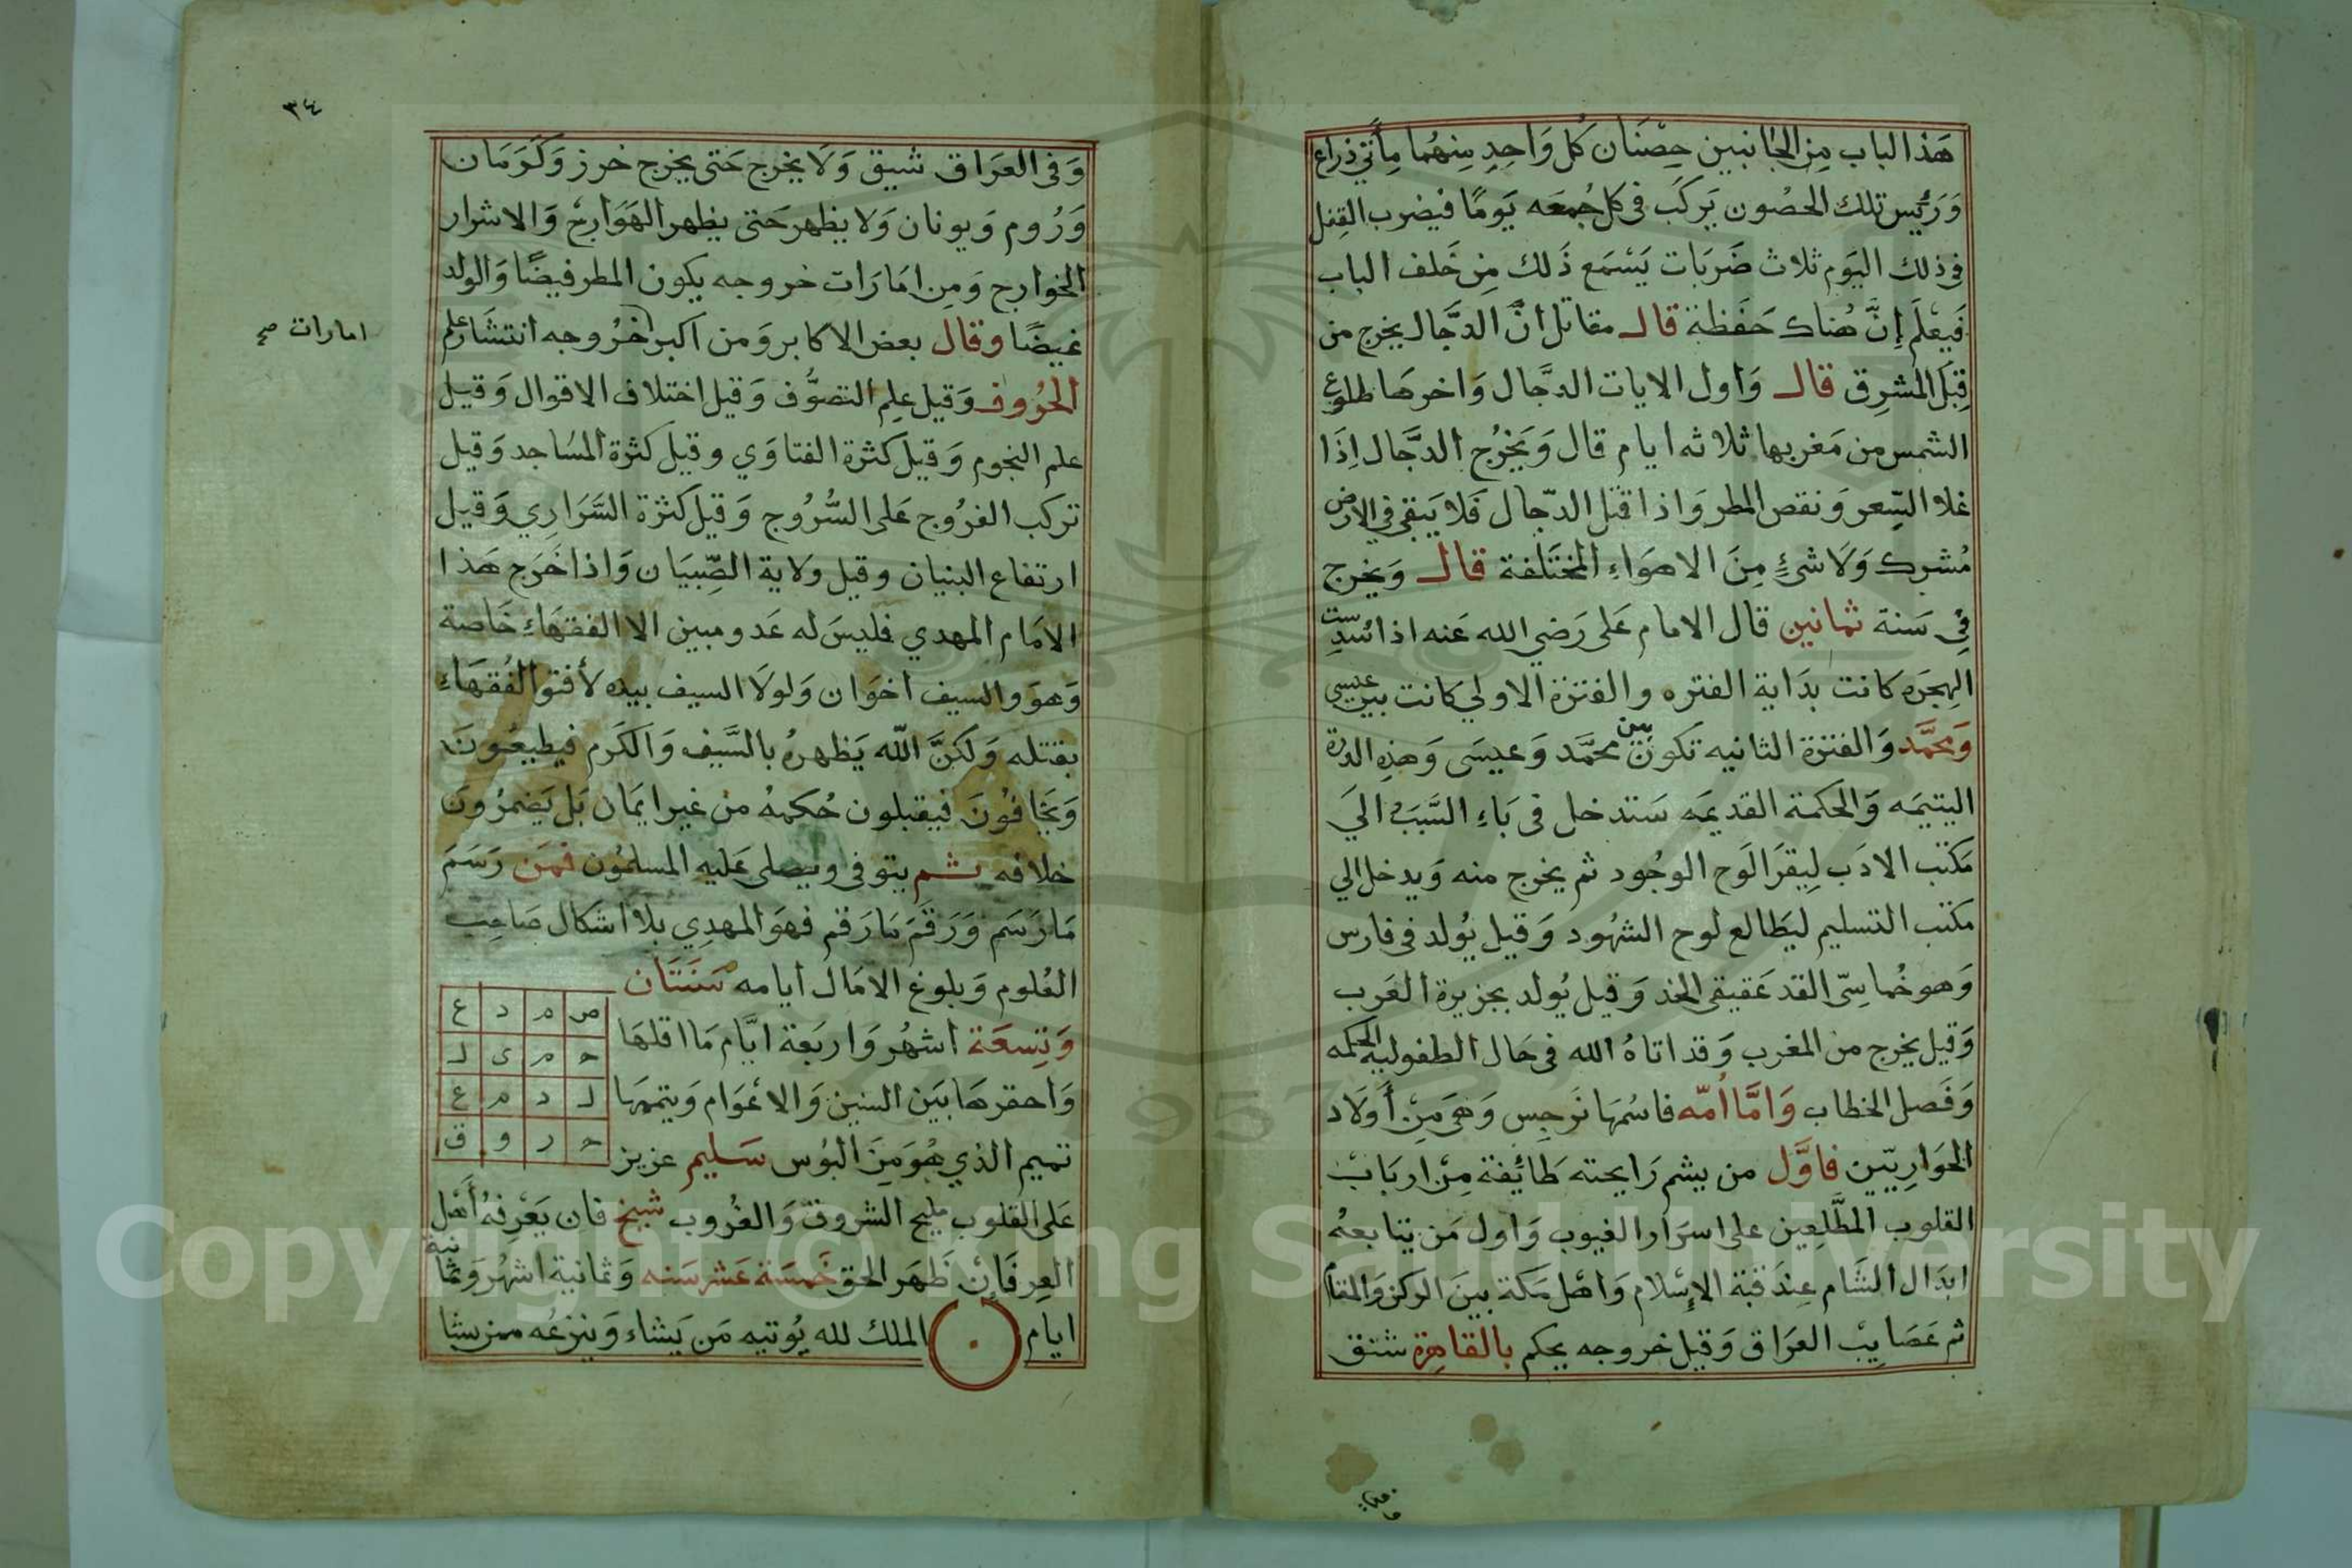 هَذا الباب مِن الجَانبين حِصْنَان كُل وَاحِدٍ مِنهُما مِأتي ذراع
وَرَئيس تلك الحصُون يَركَب في كل جُمعَه يَومًا فيضرب القِفل
في ذلك اليَوم ثلاث ضَرَبات يَسْمَع ذَلك مِن خَلف الباب
فَيعْلَم إنَّ هُناك حَفَظة قال مقاتل انَّ الدجَّال يخرج من
قِبَل المشرِق قال وَاول الايات الدجَّال وَاخرهَا طلوع
الشمس من مَغربها ثلاثه ايام قال وَيَخرُج الدجَّال اِذَا
غلا السِّعر وَنقص المطر وَاذا قتل الدّجال فَلا يَبقى في الارض
مُشرك وَلَا شئٍ مِنَ الاهوَاءِ المختَلفة قال وَيخرج
في سَنة ثمانين قال الامام عَلى رَضي الله عَنه اذا
الهجَره كانت بدَاية الفتره والفترة الاولي كانت بين عيسى
وَمحمَّد وَالفترة الثانيه تكون بين محمَّد وَعيسَى وَهذِه الدرة
اليتيمَه وَالحكمة القديمَه سَتدخل في بَاءِ السَّبَب الَي
مَكتب الادَب لِيقرَا لَوح الوجُود ثم يخرج منه وَيدخل الي
مكتب التسليم ليَطالع لوح الشهُود وَقيل يُولد في فارس
وَهو خُماسِّى القد عَقيقى الخد وَقيل يُولد بجزيرة العَرب
وَقيل يخرج من المغرب وَقد اتاهُ الله في حَال الطفوليه الحكمه
وَفَصل الخطاب وَامَّا اُمّه فاسُمهَا نَرجِس وَهيَ مِنْ أَولَاد
الحَوارِييّن فاوَّل من يشم رَايحته طَائِفة مِنْ اربَابْ
القلوب المطَّلِعين على اسرَار الغيوب وَاول مَن يتَابعهُ
ابدَال الشَام عِندَ قبة الاِسْلام وَاهْل مَكة بينَ الركن وَالمقام
ثم عَصَايبْ العرَاق وَقيل خروجه يحكم بالقاهِرة شنق
وافي
٣٤
وَفى العرَاق شيق وَلَا يخرج حَتى يخرج خرز وَكرَمَان
وَرُوم وَيونان وَلا يظهر حَتى يظهر الهَوَارج وَالاشرار
الخوارج وَمِن امَارَات خروجه يكون المطر فيضًا وَالولد
غيضًا وقال بعض الاكابر وَمن اكبر خرُوجه انتشَار علم
امارات صح
الحُروف وَقيل علِم التصوُّف وَقيل اختلاف الاقوال وَقيل
علم النجوم وَقيل كثرة الفتاوَي وقيل كثرة المسَاجد وَقيل
تركب الفرُوج عَلى السُّرُوج وَقيل كثرة السَّرَارِي وَقيل
ارتفاع البنيان وقيل ولاية الصِّبيَان وَاذا خَرَج هَذا
الامَام المهدي فليسَ له عَدو مبين الا الفقهَاءِ خَاصة
وَهوَ والسيف اخوَان وَلولَا السيف بيده لأفتو الفُقهَاءِ
بقتله وَلكنَّ اللّه يَظهرهُ بالسَّيف وَالكرَم فيطيعُونَ
وَيخافُونَ فيقبلون حُكمهُ من غير ايمَان بَل يَضمرُونَ
خلافه ثم يتوفى ويصلى عَليه المسلمُون فمَن رَسَمَ
مَا رَسَم وَرَقَمَ مَا رَقم فهوَ المهدِي بلا اشكال صَاحِب
العُلوم وَبلوغ الامَال ايامه سَنَتَان
وَتِسعَة اشهُر وَاربَعة ايَّام مَا اقلهَا
وَاحقرهَا بَيَن السنين وَالاعْوَام وَيتممهَا
تميم الذي هُوَ مِنَ البُوس سَليم عزيز
ص م د ع
ح م ى ل
ل د م ع
ح ر و ف
عَلى القلوب مليح الشروق وَالغُروب شيخ فان يَعْرِفهُ أَهْل
العِرفَانْ ظَهَر الحق خَمسَة عَشر سَنه وَثمانية اشهُر وَثمانية
ايام الملك لله يُوتيه مَن يَشاء وَينزعُه ممن يشا
Copyright © King Saud University